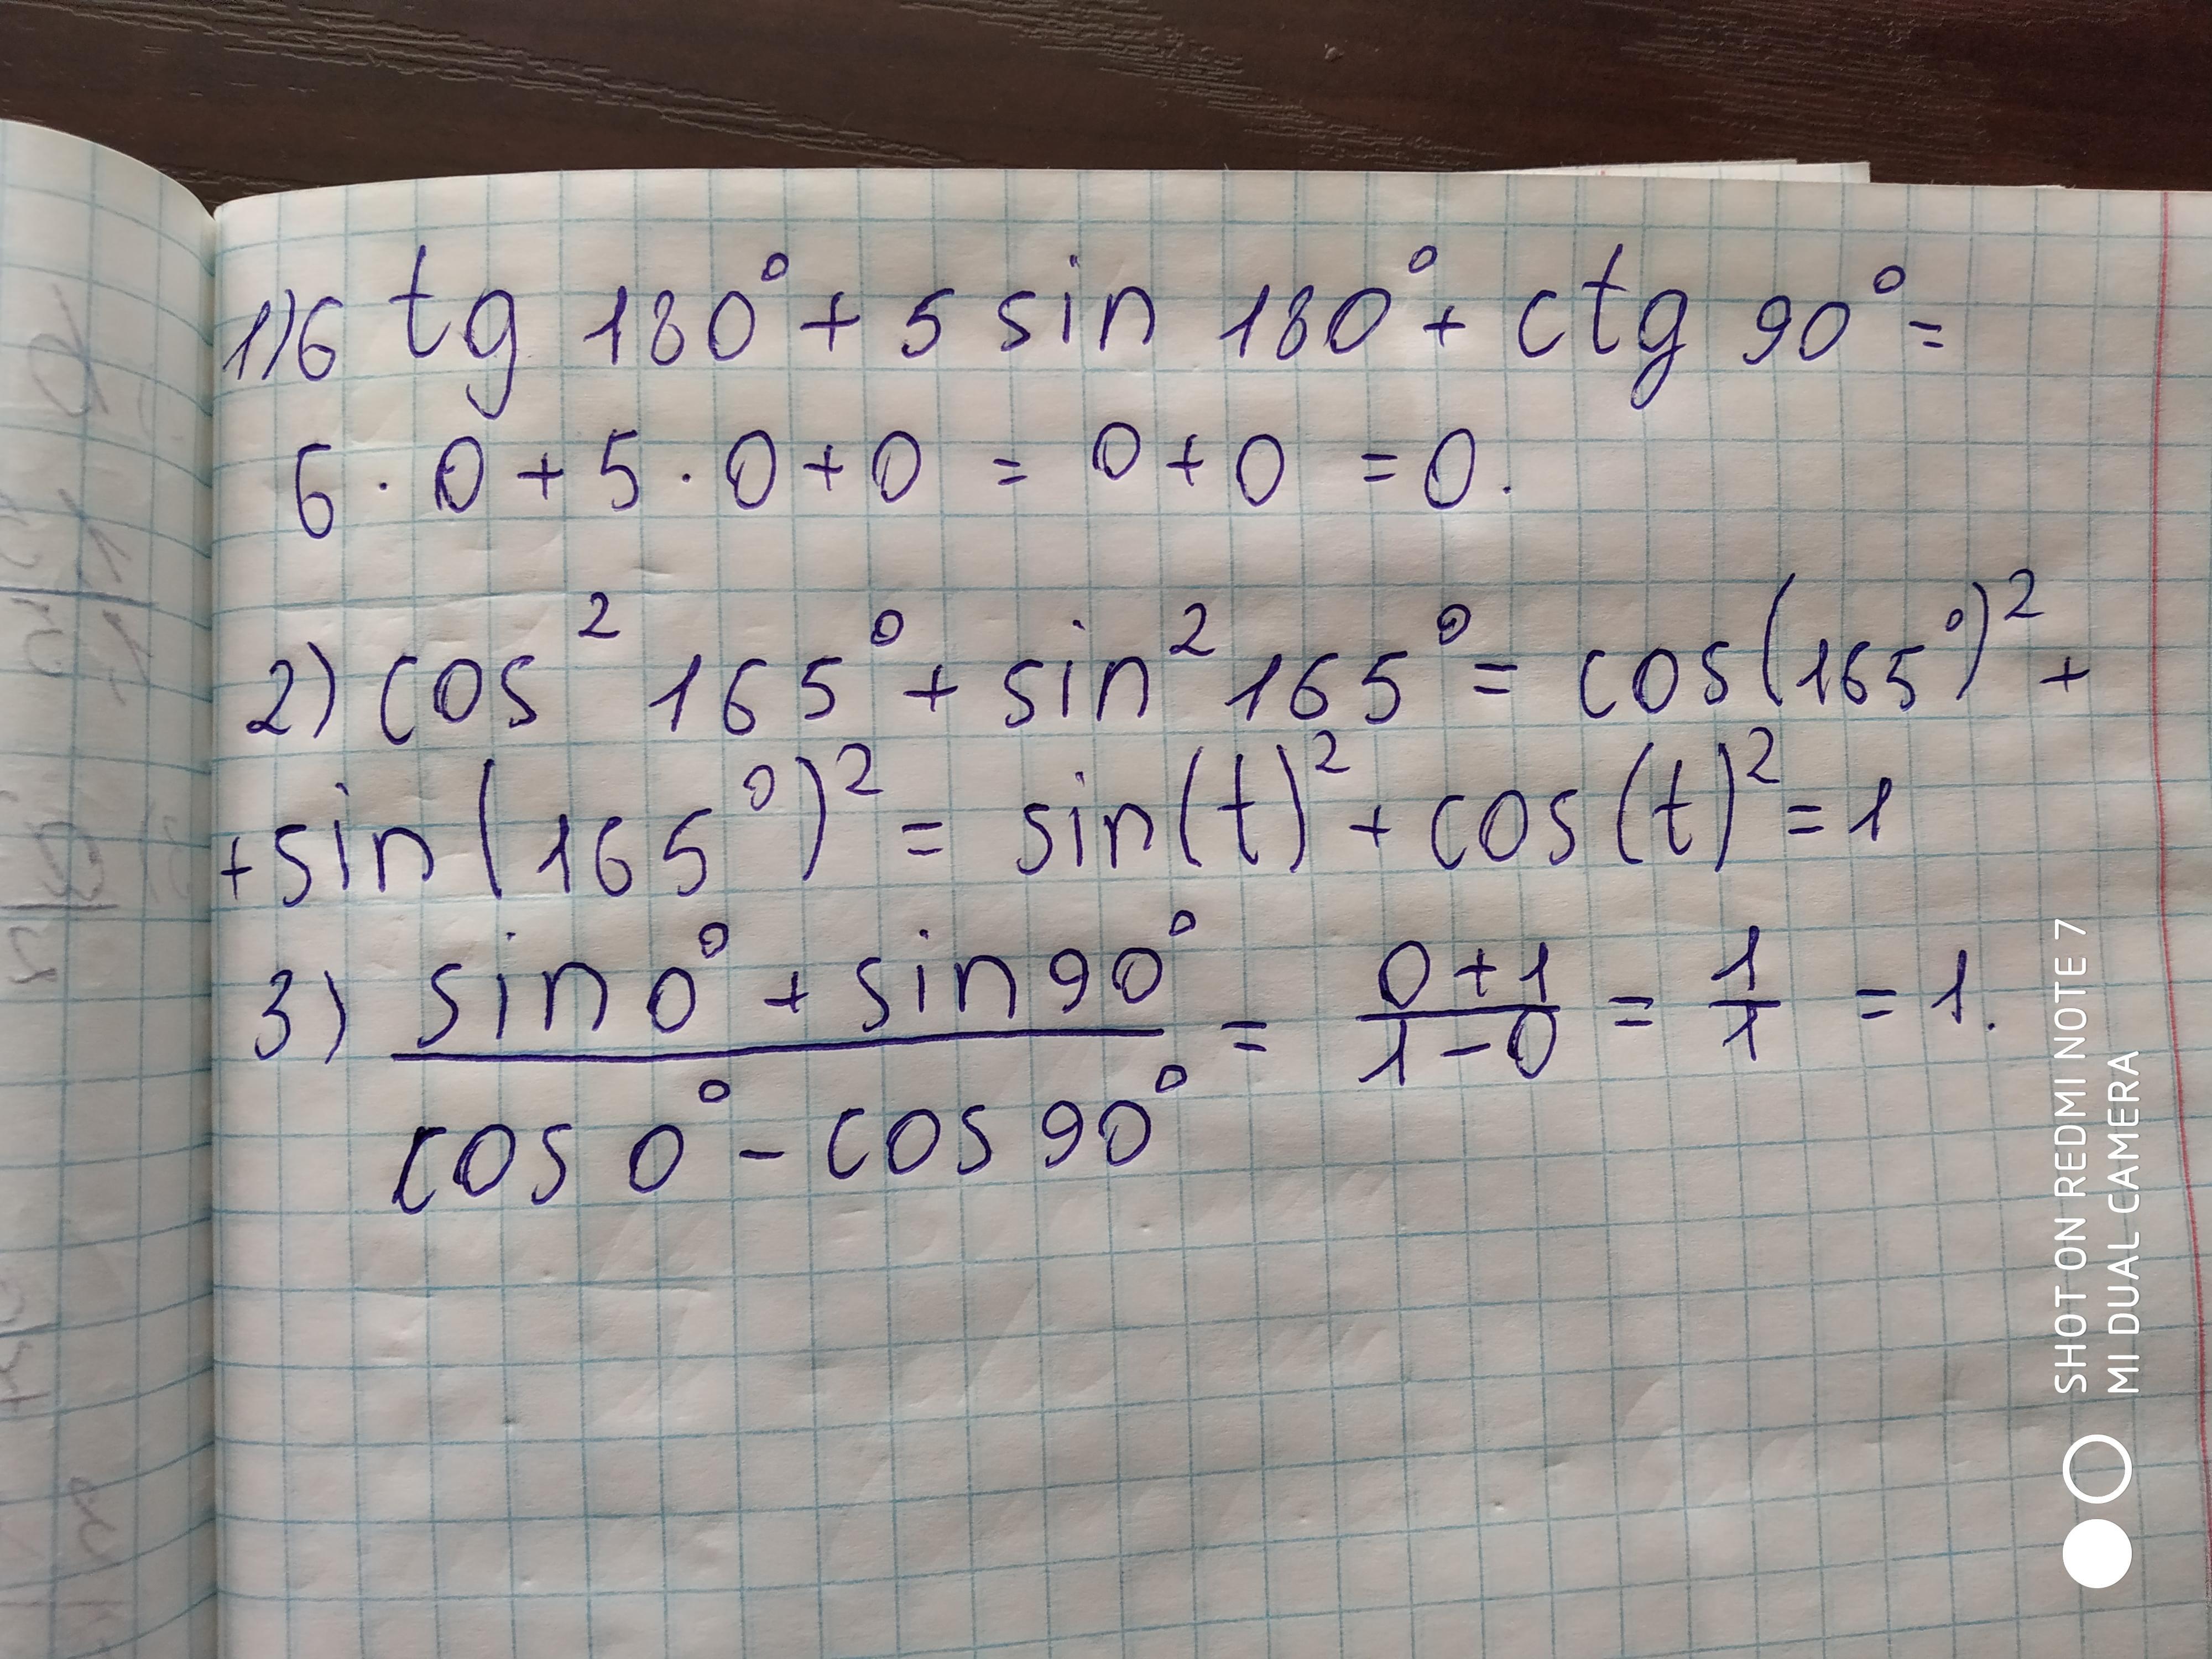 1) 6 tg 180° + 5 sin 180° + ctg 90° =
6 · 0 + 5 · 0 + 0 = 0 + 0 = 0.
2) cos² 165° + sin² 165° = cos(165°)² +
+ sin(165°)² = sin(t)² + cos(t)² = 1
3) sin 0° + sin 90° / cos 0° - cos 90° = 0 + 1 / 1 - 0 = 1 / 1 = 1.
SHOT ON REDMI NOTE 7
MI DUAL CAMERA